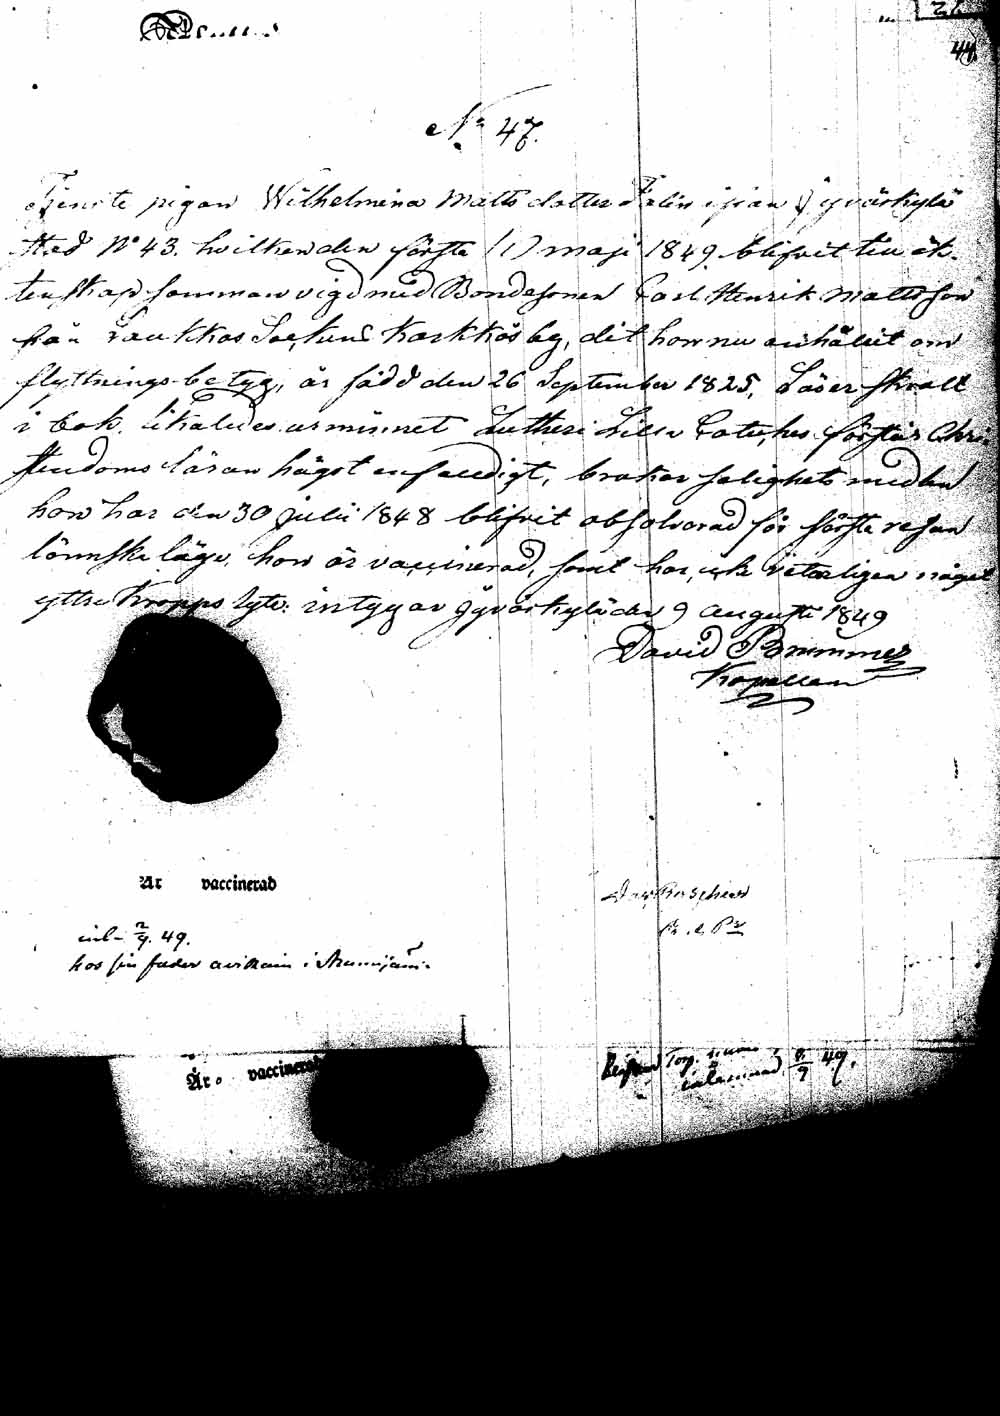 44.
No 47.
Tjenste pigan Wilhelmina Mattsdotter Felin ifrån Jyväskylä
Stad No 43. hvilken den förste (1) maji 1849. blifvit till äk-
tenskap sammanvigd med Bondesonen Carl Henrik Mattsson
från Laukkas Sockens Karkkas by, dit hon nu anhållit om
flyttnings-betyg, är född den 26 September 1825, Läser skralt
i bok. likaledes ur minnet Lutheri Lilla Catuches. förstår Chri
stendoms läran högst enfaldigt, brukar salighets medlen
hon har den 30 Julii 1848 blifvit absolverad för första resan
lönnska läge, hon är vaccinerad, samt har, icke veterligen något
yttre Kropps lyte. intygar Jyväskylä den 9 augusti 1849
David Brummer
Kapellan
Är vaccinerad
inl- 2/9. 49.
hos sin fader i
Är vaccinerad
49.